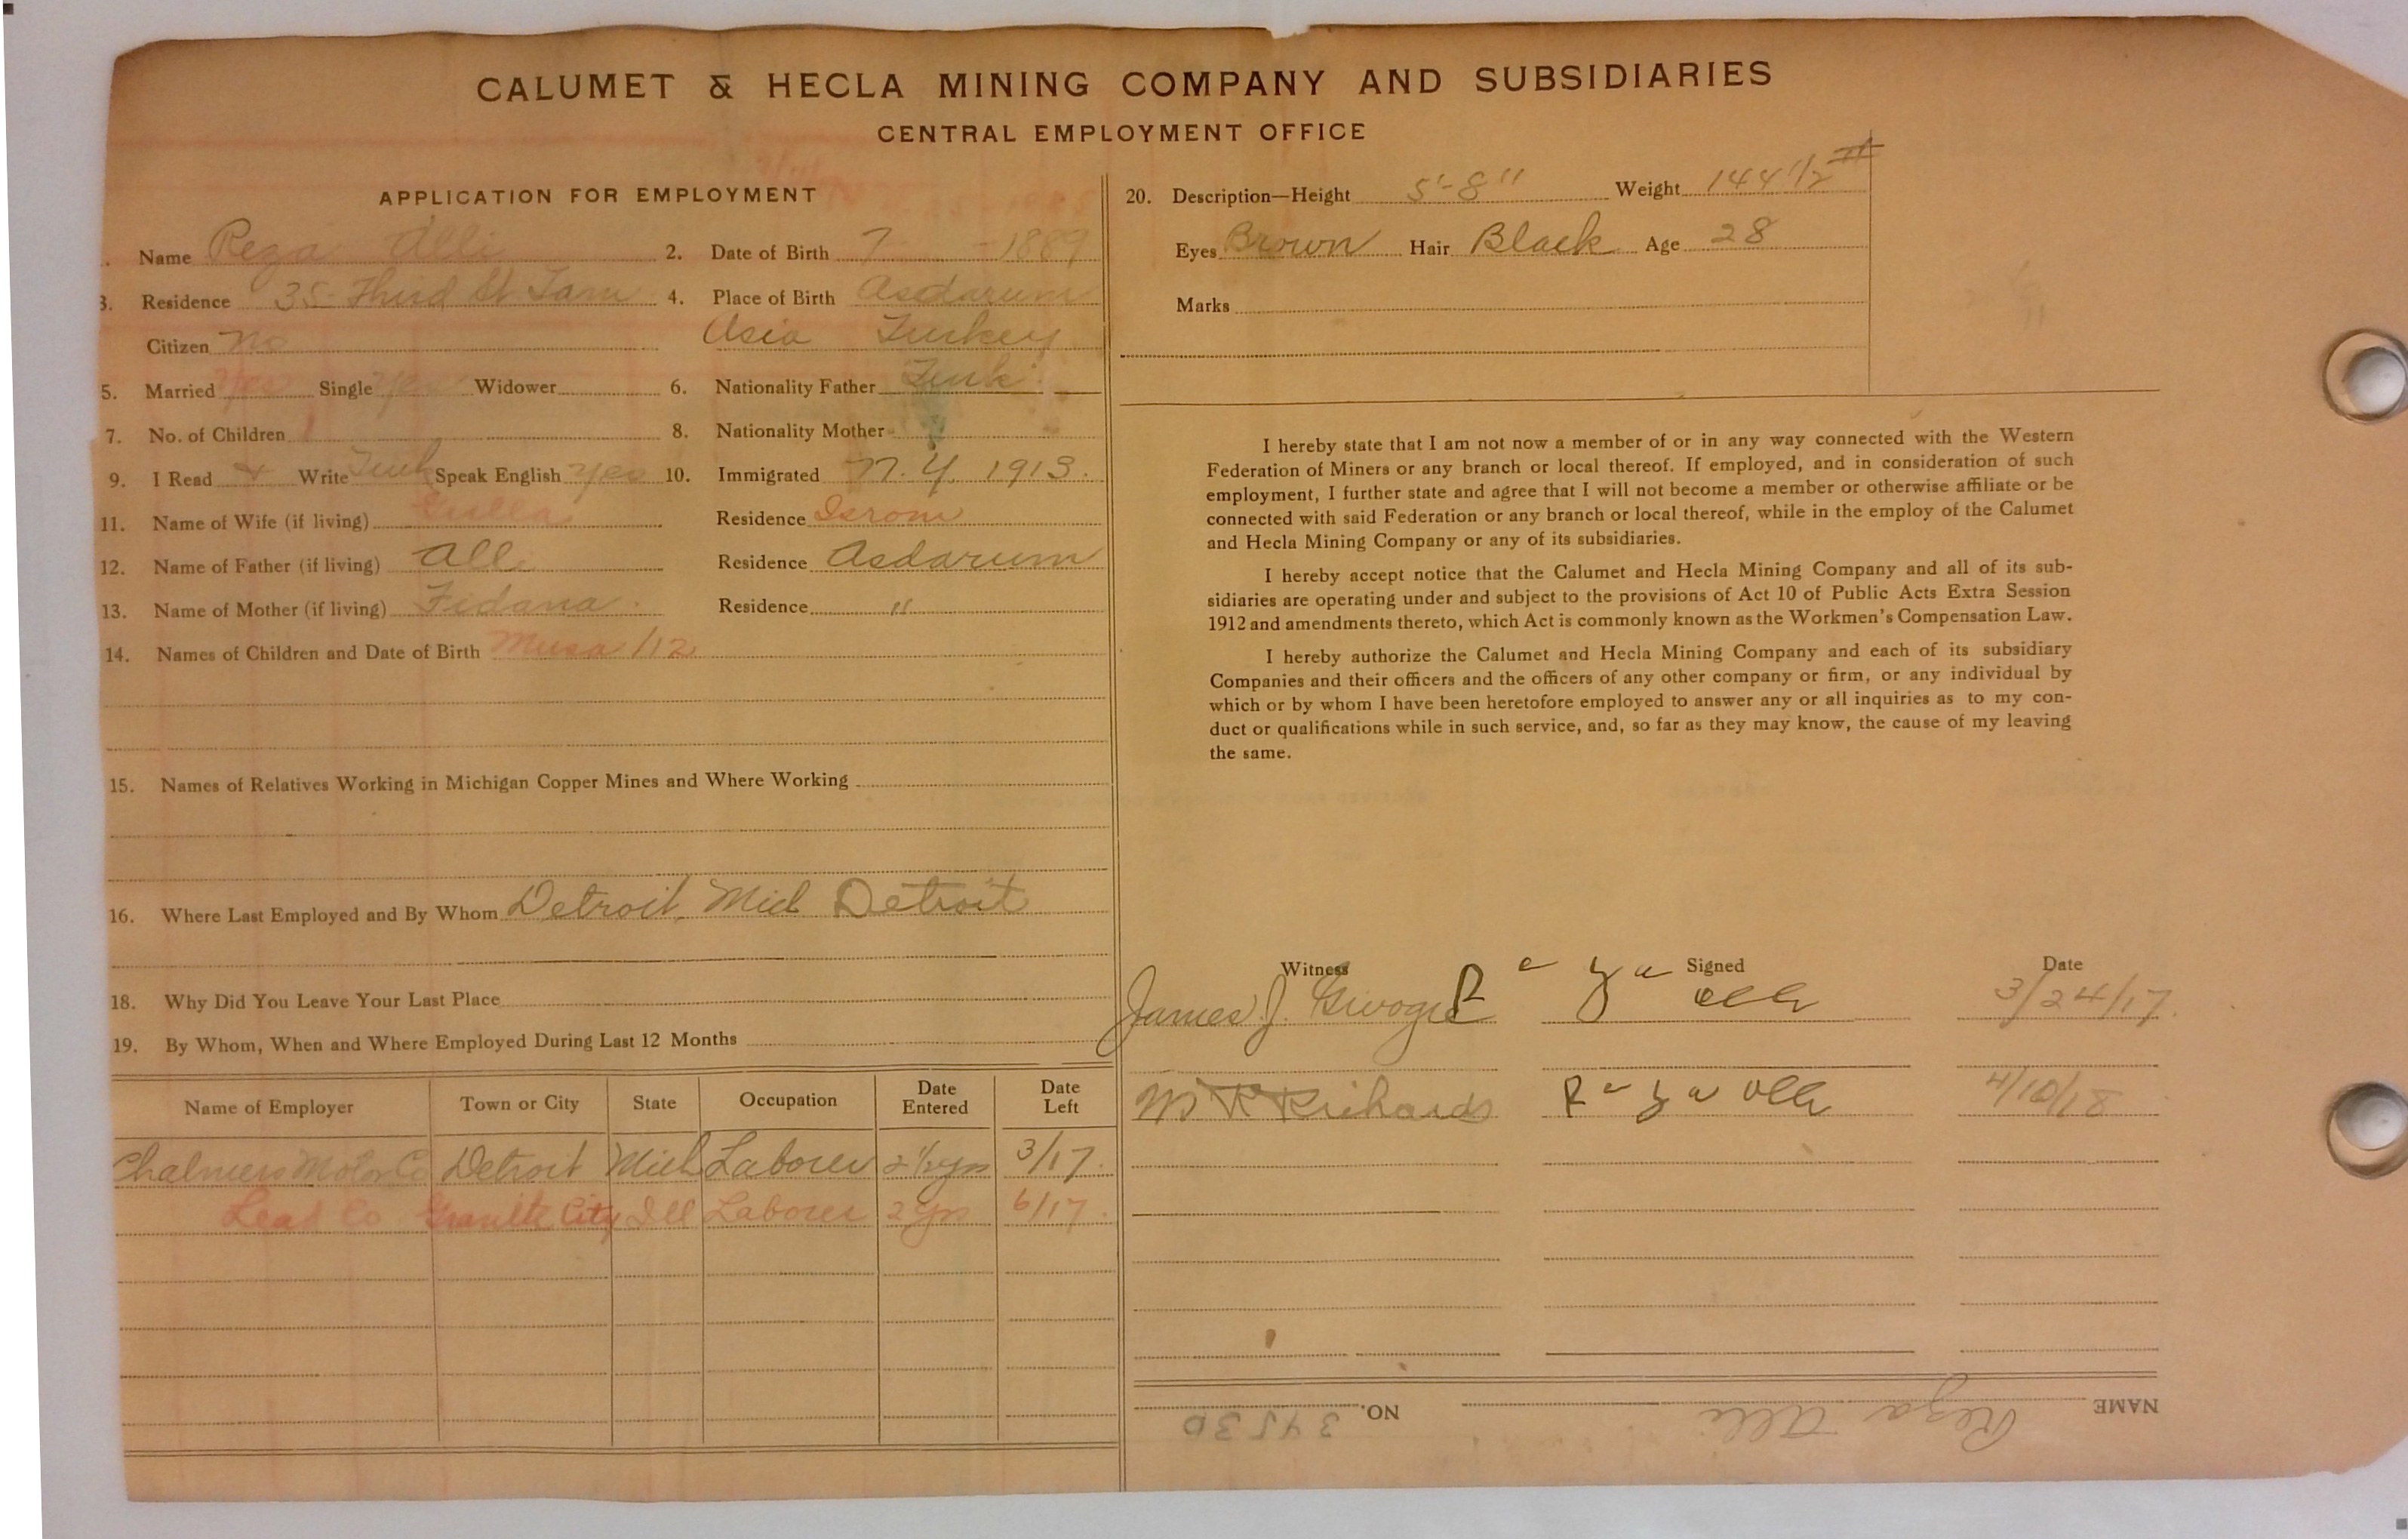 CALUMET & HECLA MINING COMPANY AND SUBSIDIARIES
CENTRAL EMPLOYMENT OFFICE
APPLICATION FOR EMPLOYMENT
Name Reza Alli 2. Date of Birth 7 - 1889
3. Residence 35 Third St. Tam 4. Place of Birth Asdarum
Citizen No Asia Turkey
5. Married Yes Single Yes Widower 6. Nationality Father Turk
7. No. of Children 1 8. Nationality Mother "
9. I Read & Write Turk Speak English Yes 10. Immigrated N.Y. 1913.
11. Name of Wife (if living) Gulla Residence Isrom
12. Name of Father (if living) Alli Residence Asdarum
13. Name of Mother (if living) Fidana Residence "
14. Names of Children and Date of Birth Musa /12
15. Names of Relatives Working in Michigan Copper Mines and Where Working
16. Where Last Employed and By Whom Detroit, Mich Detroit
18. Why Did You Leave Your Last Place
19. By Whom, When and Where Employed During Last 12 Months
Name of Employer Town or City State Occupation Date Entered Date Left
Chalmers Motor Co Detroit Mich Laborer 2 1/2 yrs 3/17.
Lead Co Granite City Ill Laborer 2 yrs 6/17.
20. Description—Height 5'-8" Weight 144 1/2 #
Eyes Brown Hair Black Age 28
Marks
I hereby state that I am not now a member of or in any way connected with the Western
Federation of Miners or any branch or local thereof. If employed, and in consideration of such
employment, I further state and agree that I will not become a member or otherwise affiliate or be
connected with said Federation or any branch or local thereof, while in the employ of the Calumet
and Hecla Mining Company or any of its subsidiaries.
I hereby accept notice that the Calumet and Hecla Mining Company and all of its sub-
sidiaries are operating under and subject to the provisions of Act 10 of Public Acts Extra Session
1912 and amendments thereto, which Act is commonly known as the Workmen's Compensation Law.
I hereby authorize the Calumet and Hecla Mining Company and each of its subsidiary
Companies and their officers and the officers of any other company or firm, or any individual by
which or by whom I have been heretofore employed to answer any or all inquiries as to my con-
duct or qualifications while in such service, and, so far as they may know, the cause of my leaving
the same.
Witness Signed Date
James J. 3/24/17.
W R Richards 4/10/18
NAME Reza Alli NO. 34530